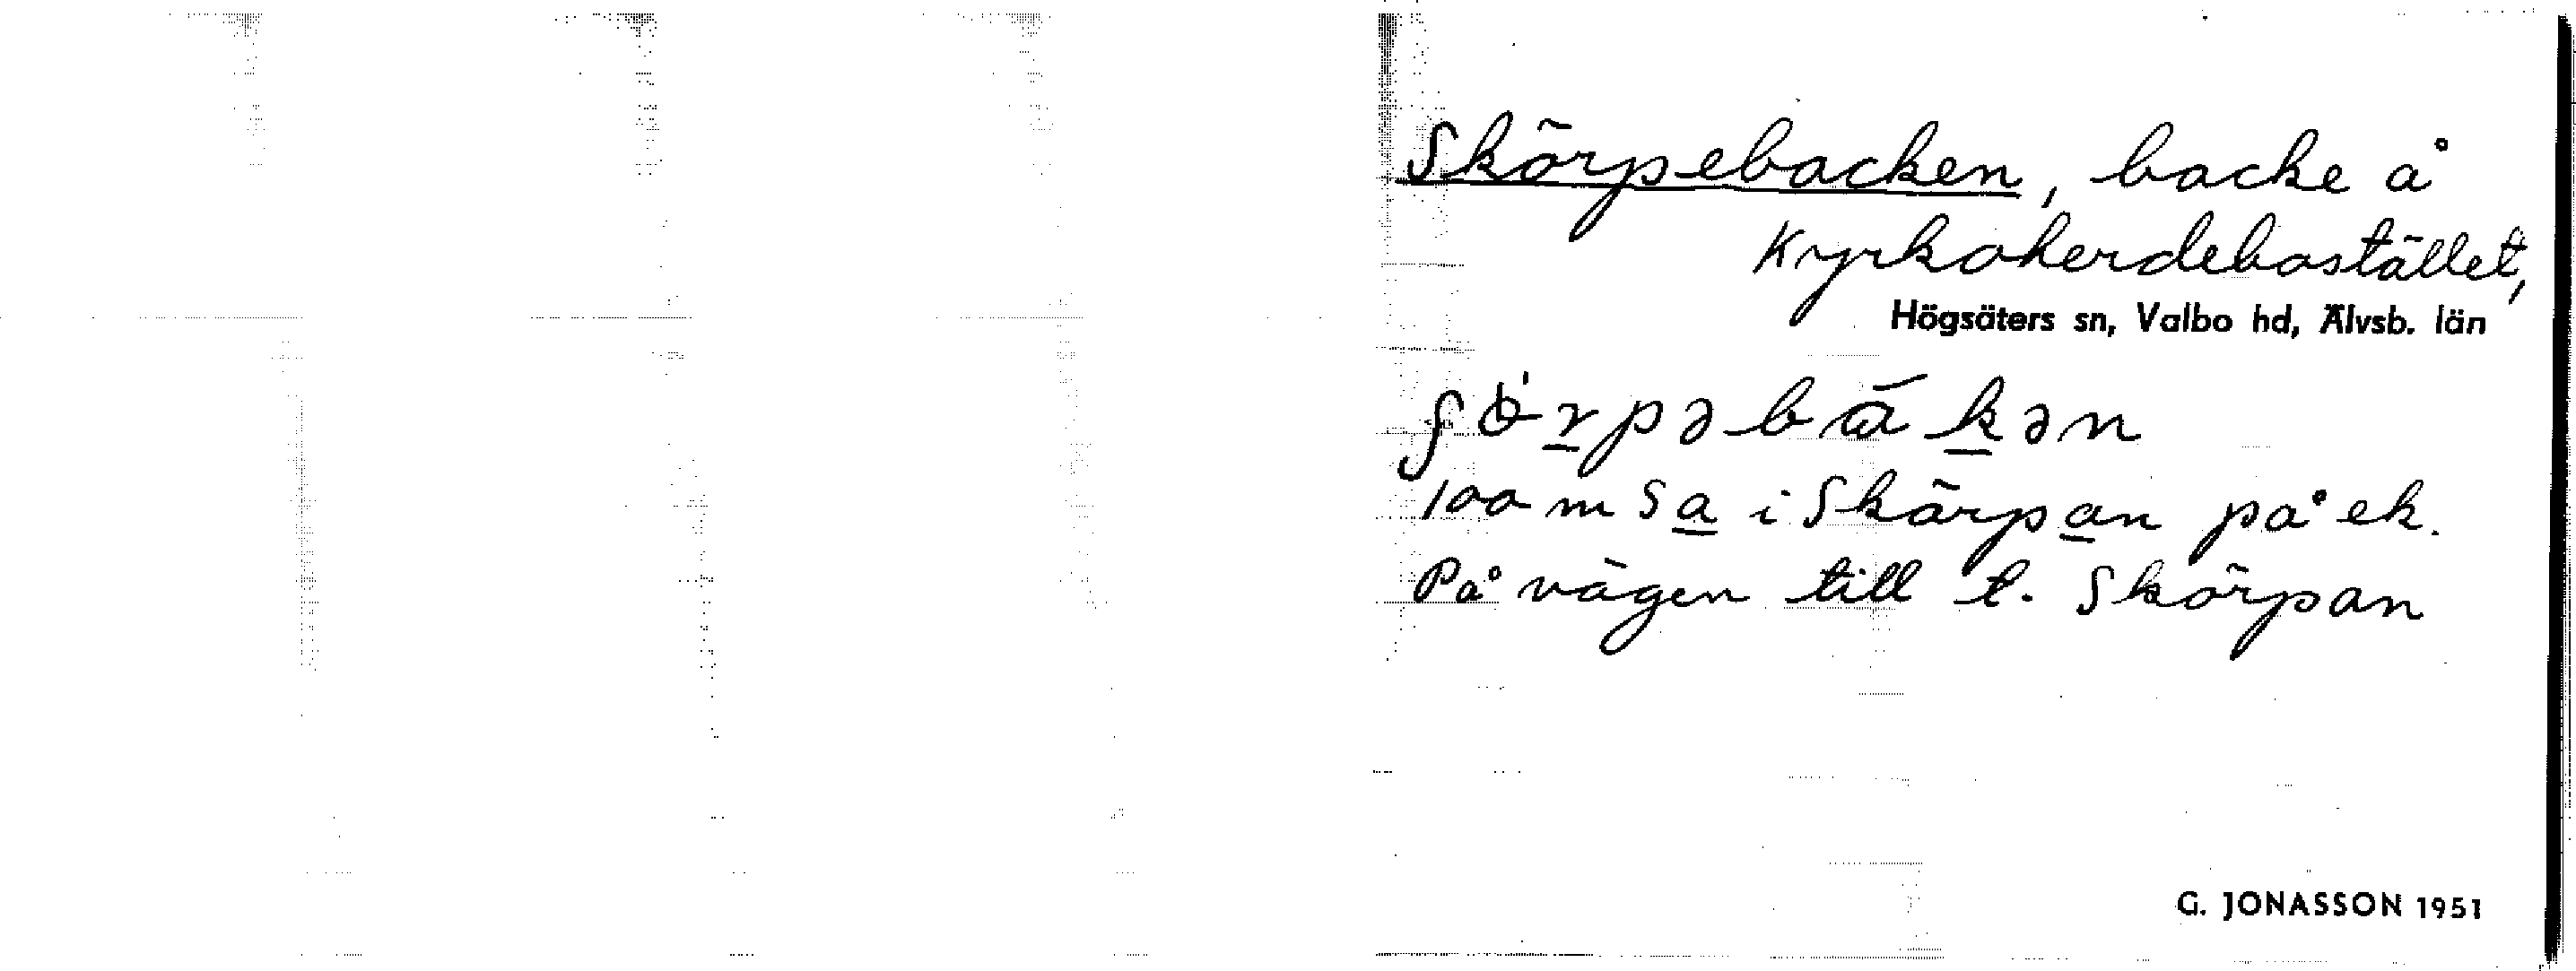 Skörpebacken, backe å
Kyrkoherdebostället,
Högsäters sn, Valbo hd, Älvsb. län
100 m S a i Skärpan på ek.
På vägen till t. Skörpan
G. JONASSON 1951